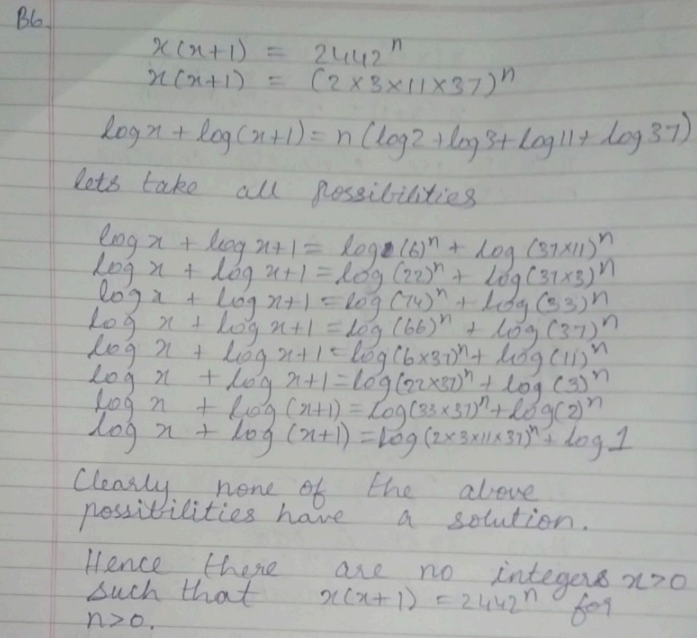 B6.
x(x+1) = 2442^n
x(x+1) = (2×3×11×37)^n
log x + log(x+1) = n(log2 + log3 + log11 + log37)
lets take all possibilities
log x + log x+1 = log (6)^n + log (37×11)^n
log x + log x+1 = log (22)^n + log (37×3)^n
log x + log x+1 = log (74)^n + log (33)^n
log x + log x+1 = log (66)^n + log (37)^n
log x + log x+1 = log (6×37)^n + log (11)^n
log x + log x+1 = log (22×37)^n + log (3)^n
log x + log (x+1) = log (33×37)^n + log (2)^n
log x + log (x+1) = log (2×3×11×37)^n + log 1
Clearly none of the above
possibilities have a solution.
Hence there are no integers x>0
such that x(x+1) = 2442^n for
n>0.